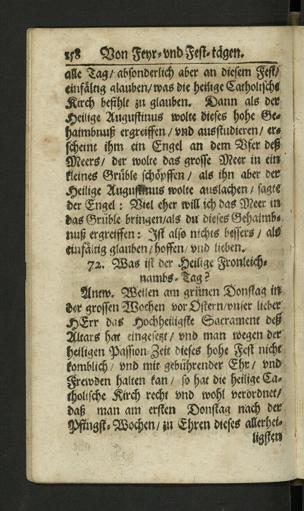 158 Von Feyr- vnd Fest-tägen.
alle Tag/ absonderlich aber an diesem Fest/
einfältig glauben/ was die heilige Catholische
Kirch befihlt zu glauben. Dann als der
Heilige Augustinus wolte dieses hohe Ge-
haimbnuß ergreiffen/ vnd ausstudieren/ er-
scheint ihm ein Engel an dem Vser deß
Meers/ der wolte das grosse Meer in ein
kleines Grüble schöpffen/ als ihn aber der
Heilige Augustinus wolte auslachen/ sagte
der Engel: Viel eher will ich das Meer in
das Grüble bringen/ als du dieses Gehaimb-
nuß ergreiffen: Ist also nichts bessers/ als
einfältig glauben/ hoffen/ vnd lieben.
72. Was ist der Heilige Fronleich-
nambs-Tag?
Antw. Weilen am grünen Donstag in
der grossen Wochen vor Ostern/ vnser lieber
HErr das Hochheiligste Sacrament deß
Altars hat eingesetzt/ vnd man wegen der
heiligen Passion-Zeit dieses hohe Fest nicht
komblich/ vnd mit gebührender Ehr/ vnd
Frewden halten kan/ so hat die heilige Ca-
tholische Kirch recht vnd wohl verordnet/
daß man am ersten Donstag nach der
Pfingst-Wochen/ zu Ehren dieses allerhei-
ligsten